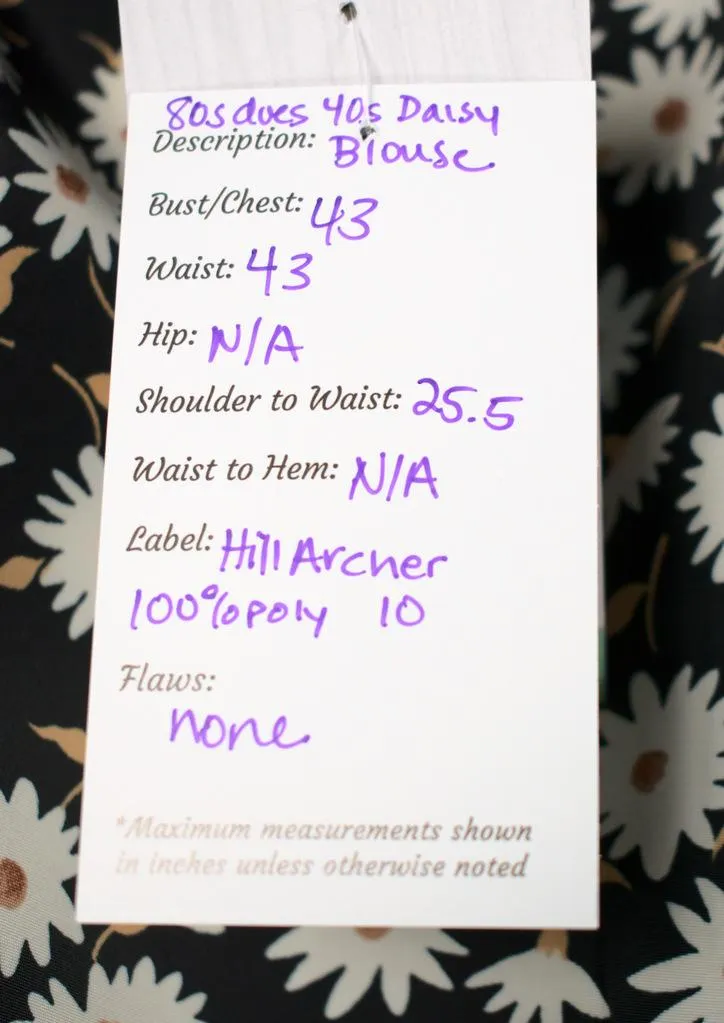 80s does 40s Daisy
Description: Blouse
Bust/Chest: 43
Waist: 43
Hip: N/A
Shoulder to Waist: 25.5
Waist to Hem: N/A
Label: Hill Archer
100% poly 10
Flaws:
none
*Maximum measurements shown
in inches unless otherwise noted